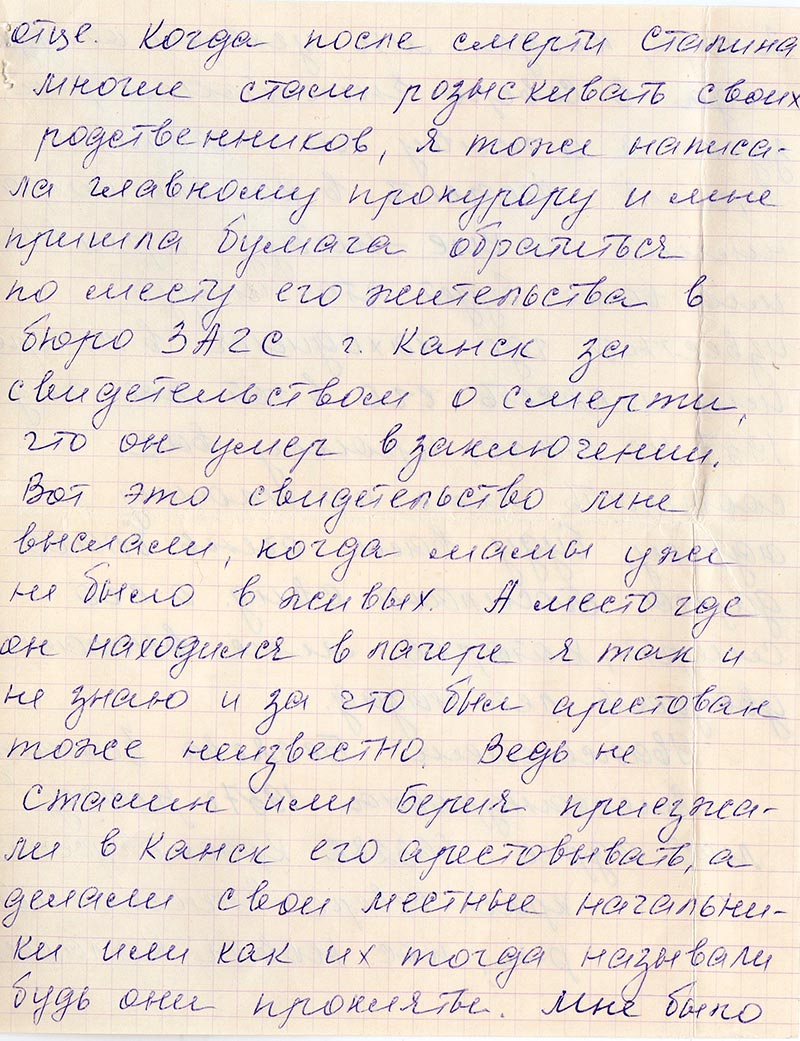 отце. Когда после смерти Сталина
многие стали розыскивать своих
родственников, я тоже написа-
ла главному прокурору и мне
пришла бумага обратиться
по месту его жительства в
бюро ЗАГС г. Канск за
свидетельством о смерти,
что он умер в заключении.
Вот это свидетельство мне
выслали, когда мамы уже
не было в живых. А место где
он находился в лагере я так и
не знаю и за что был арестован
тоже неизвестно. Ведь не
Сталин или Берия приезжа-
ли в Канск его арестовывать, а
делали свои местные начальни-
ки или как их тогда называли
будь они прокляты. Мне было